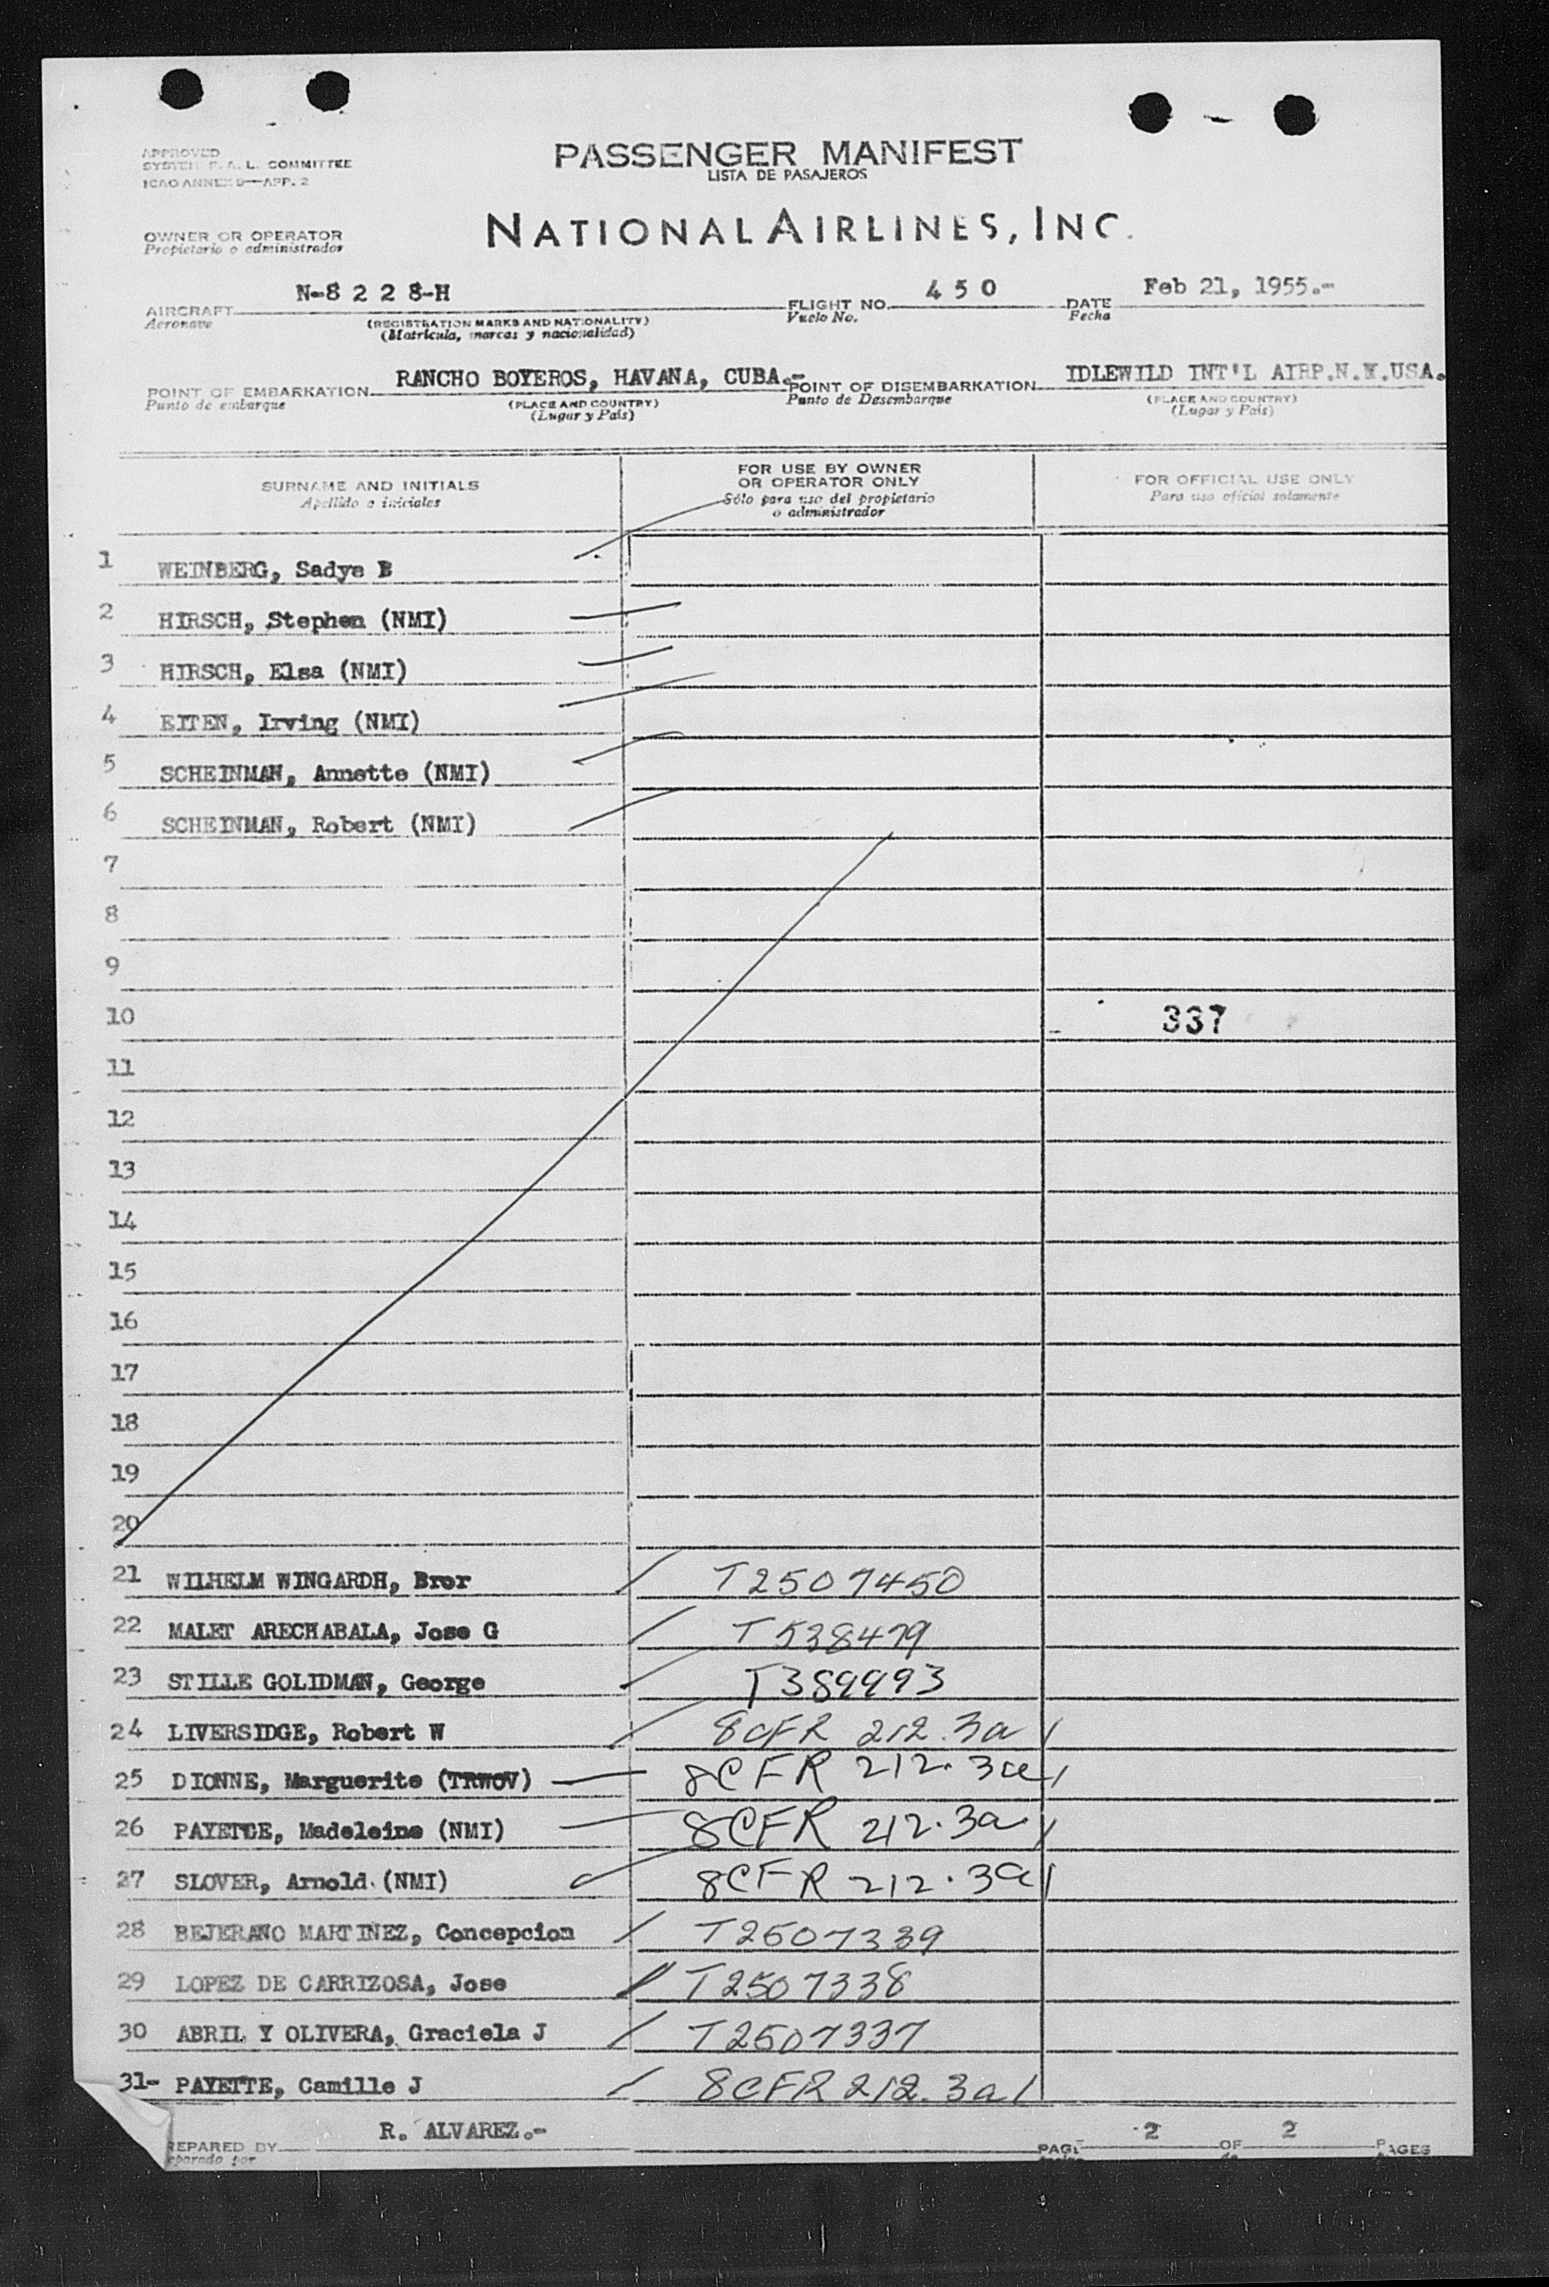 APPROVED
SYSTEM F. A. L. COMMITTEE
ICAO ANNEX 9—APP. 2
PASSENGER MANIFEST
LISTA DE PASAJEROS
OWNER OR OPERATOR
Propietario o administrador
NATIONAL AIRLINES, INC.
AIRCRAFT N-8 2 2 8-H FLIGHT NO. 4 5 0 DATE Feb 21, 1955.-
Aeronave (REGISTRATION MARKS AND NATIONALITY) Vuelo No. Fecha
(Matricula, marcas y nacionalidad)
POINT OF EMBARKATION RANCHO BOYEROS, HAVANA, CUBA.- POINT OF DISEMBARKATION IDLEWILD INT'L AIRP.N.Y.USA.
Punto de embarque (PLACE AND COUNTRY) Punto de Desembarque (PLACE AND COUNTRY)
(Lugar y País) (Lugar y País)
SURNAME AND INITIALS
Apellido e iniciales
FOR USE BY OWNER
OR OPERATOR ONLY
Sólo para uso del propietario
o administrador
FOR OFFICIAL USE ONLY
Para uso oficial solamente
1 WEINBERG, Sadye B
2 HIRSCH, Stephen (NMI)
3 HIRSCH, Elsa (NMI)
4 EITEN, Irving (NMI)
5 SCHEINMAN, Annette (NMI)
6 SCHEINMAN, Robert (NMI)
7
8
9
10 337
11
12
13
14
15
16
17
18
19
20
21 WILHELM WINGARDH, Bror T2507450
22 MALET ARECHABALA, Jose G T538479
23 STILLE GOLIDMAN, George T389993
24 LIVERSIDGE, Robert W 8CFR 212.3a1
25 DIONNE, Marguerite (TRWOV) 8CFR 212.3a1
26 PAYETTE, Madeleine (NMI) 8CFR 212.3a1
27 SLOVER, Arnold (NMI) 8CFR 212.3a1
28 BEJERANO MARTINEZ, Concepcion T2507339
29 LOPEZ DE CARRIZOSA, Jose T2507338
30 ABRIL Y OLIVERA, Graciela J T2507337
31- PAYETTE, Camille J 8CFR 212.3a1
REPARED BY R. ALVAREZ.- PAGE 2 OF 2 PAGES
eparado por